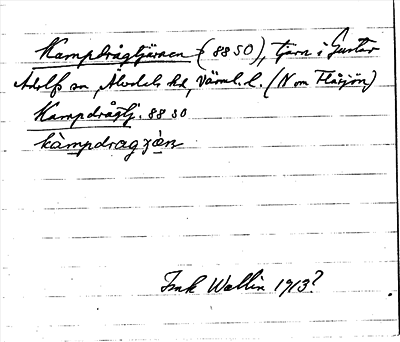 Kampdrågtjärnen (88 SO), tjärn i Gustav
Adolfs sn, Älvdals hd, Värml. l. (N om Flåsjön)
Kampdrågtj. 88 SO
Ink Wallin 1913?